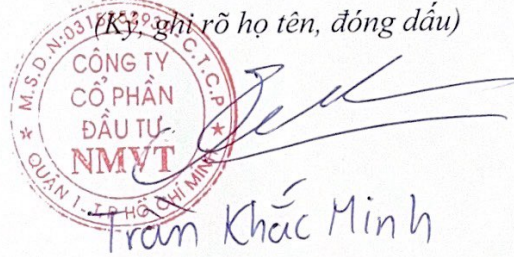 (Ký, ghi rõ họ tên, đóng dấu)
C.T.C.P
CÔNG TY
CỔ PHẦN
ĐẦU TƯ
NMVT
QUẬN 1 - T.P HỒ CHÍ MINH
Trần Khắc Minh